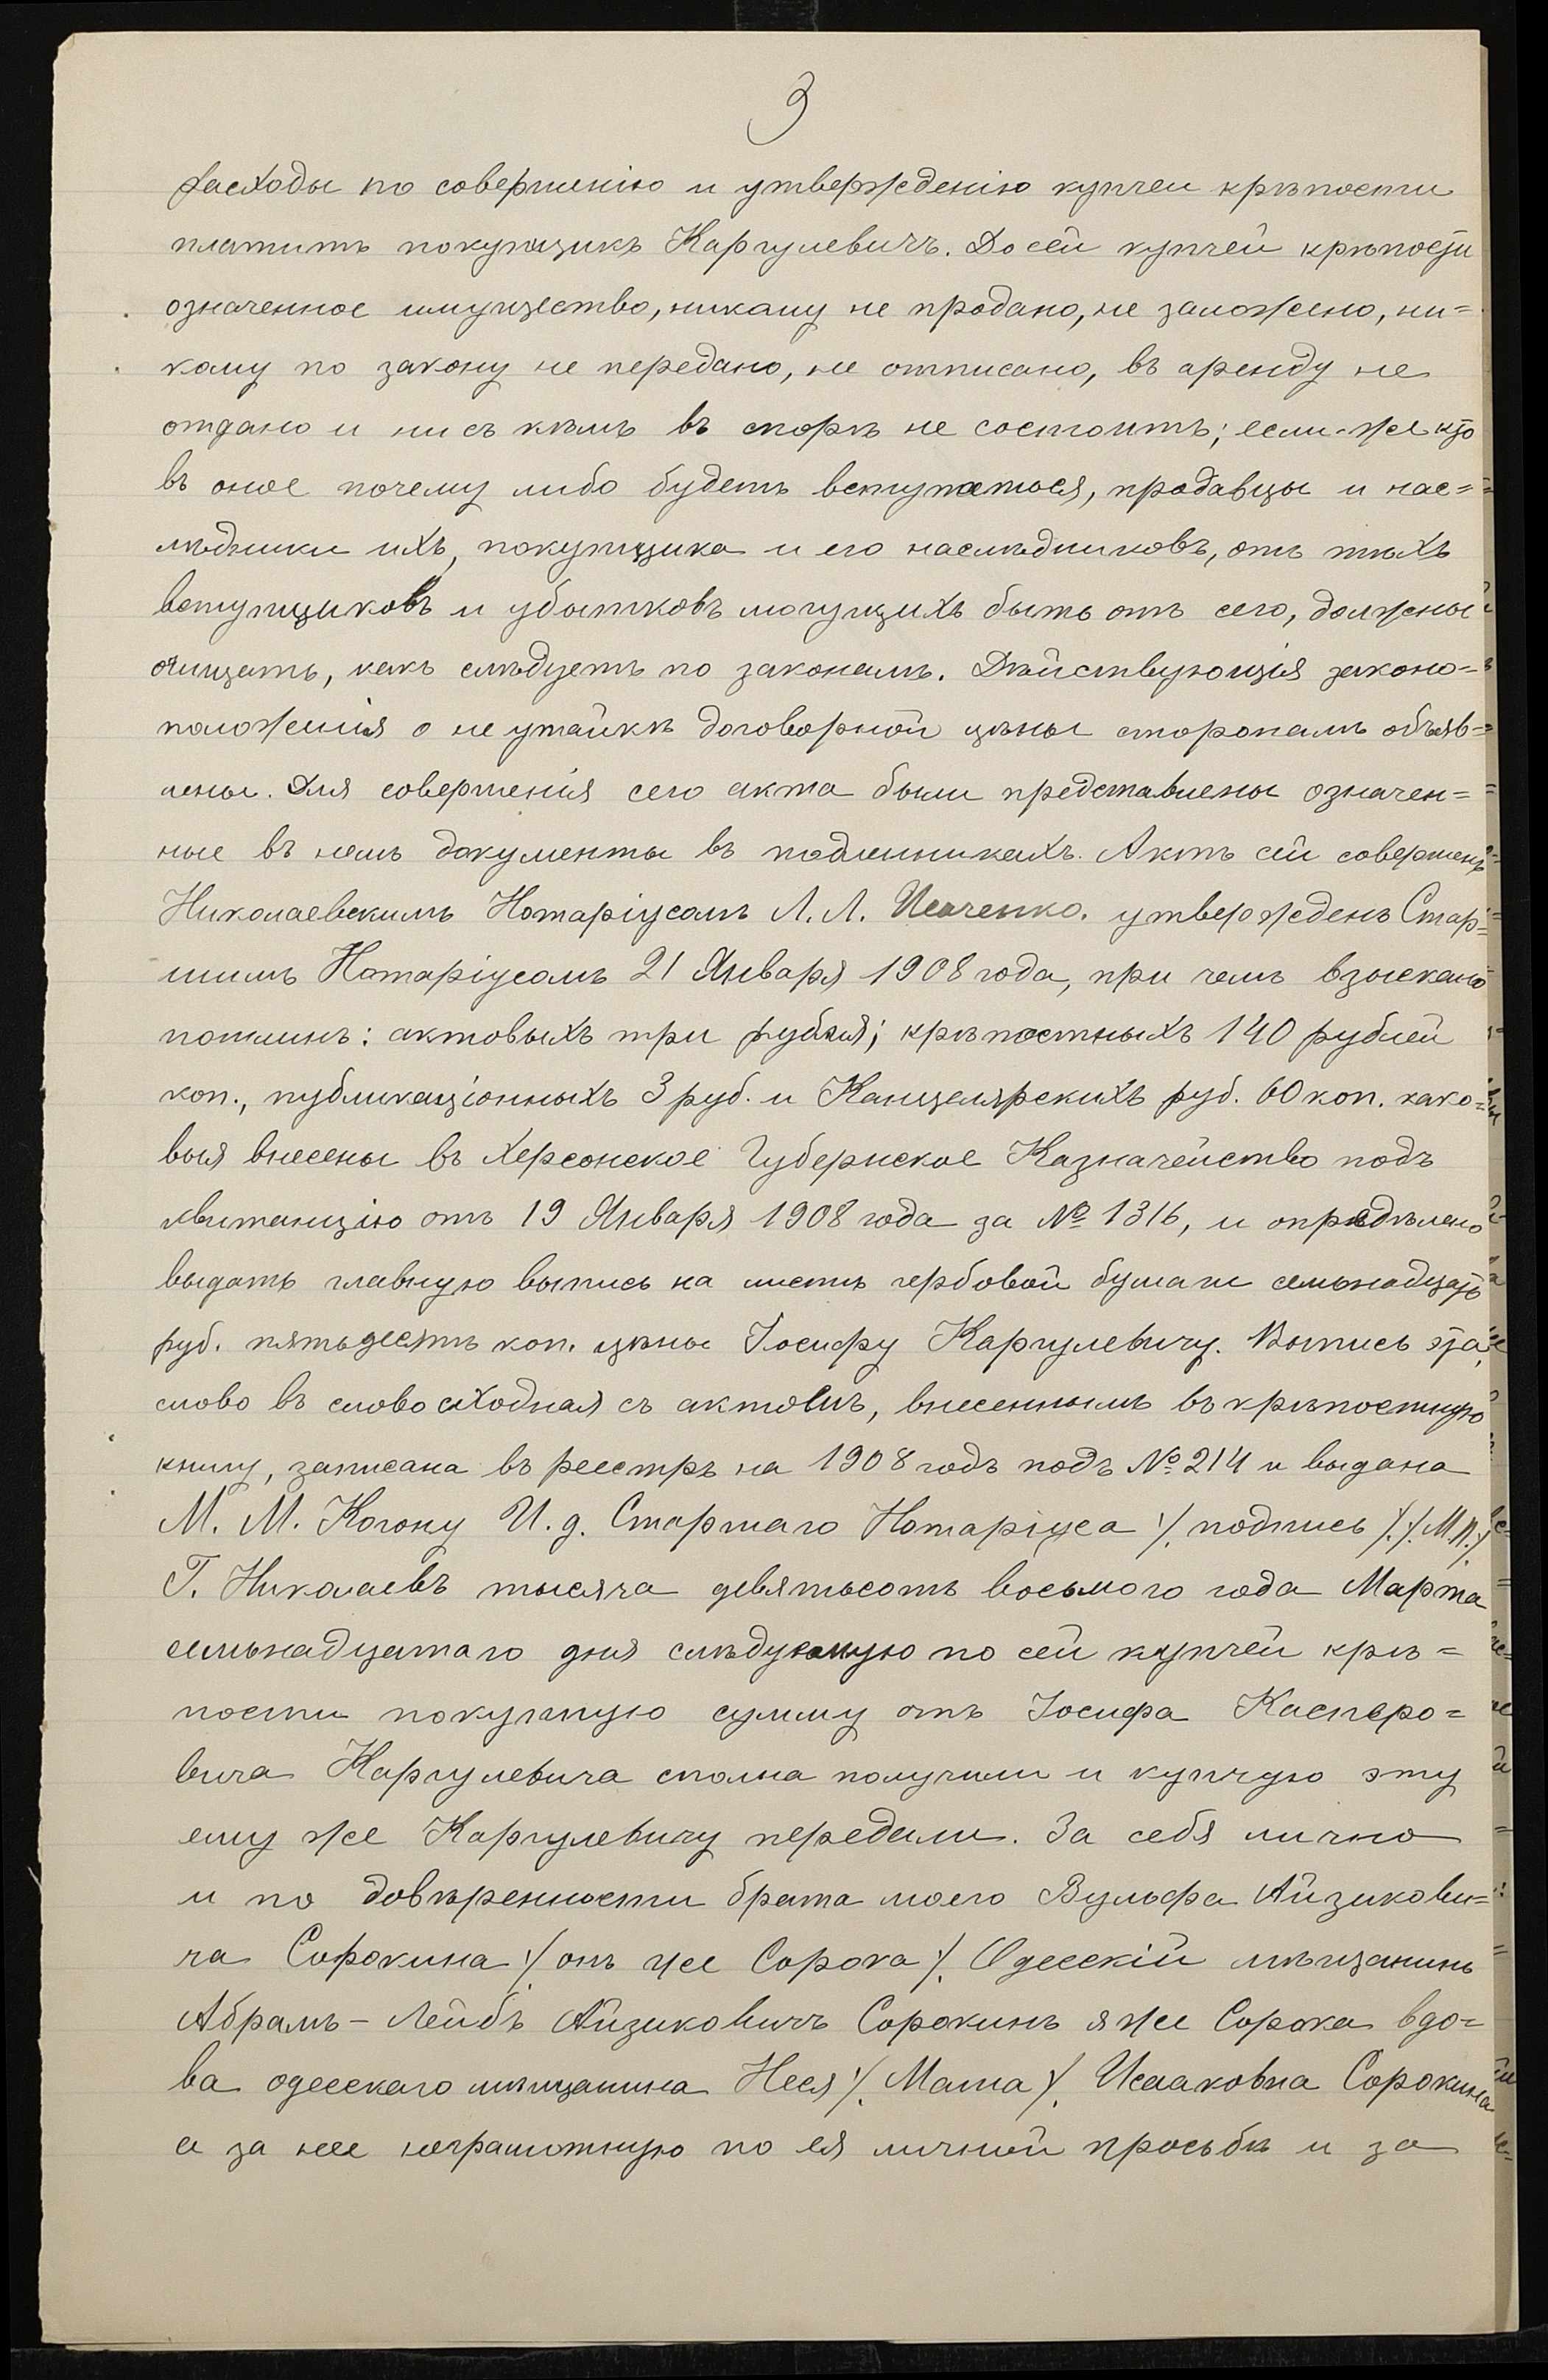 3
расходы по совершенію и утвержденію купчей крѣпости
платитъ покупщикъ Каргулевичъ. До сей купчей крѣпости
означенное имущество, никому не продано, не заложено, ни=
кому по закону не передано, не отписано, въ аренду не
отдано и ни съ кѣмъ въ спорѣ не состоитъ; если-же кто
въ оное почему либо будетъ вступаться, продавцы и нас=
лѣдники ихъ, покупщика и его наслѣдниковъ, отъ тѣхъ
вступщиковъ и убытковъ могущихъ быть отъ сего, должны
очищать, какъ слѣдуетъ по законамъ. Дѣйствующія законо=
положенія о не утайкѣ договорной цѣны сторонамъ объяв=
лены. Для совершенія сего акта были представлены означен=
ные въ немъ документы въ подлинникахъ. Актъ сей совершенъ
Николаевскимъ Нотаріусомъ Л. Л. утвержденъ Стар=
шимъ Нотаріусомъ 21 Января 1908 года, при чемъ взыскано
пошлинъ: актовыхъ три рубля; крѣпостныхъ 140 рублей
коп., публикаціонныхъ 3 руб. и Канцелярскихъ руб. 60 коп. како=
выя внесены въ Херсонское Губернское Казначейство подъ
квитанцію отъ 19 Января 1908 года за № 1316, и опредѣлено
выдать главную выпись на листѣ гербовой бумаги семьнадцать
руб. пятьдесятъ коп. цѣны Іосифу Каргулевичу. Выпись эта,
слово въ слово сходная съ актомъ, внесеннымъ въ крѣпостную
книгу, записана въ реестръ на 1908 годъ подъ № 214 и выдана
М. М. Когону И. д. Старшаго Нотаріуса /. подпись /. /. М.П. /.
Г. Николаевъ тысяча девятьсотъ восьмого года Марта
семьнадцатаго дня слѣдуемую по сей купчей крѣ=
пости покупную сумму отъ Іосифа Касперо=
вича Каргулевича сполна получили и купчую эту
ему же Каргулевичу передали. За себя лично
и по довѣренности брата моего Вульфа Айзикови=
ча Сорокина /. онъ же Сорока /. Одесскій мѣщанинъ
Абрамъ-Лейбъ Айзиковичъ Сорокинъ я же Сорока вдо=
ва одесскаго мѣщанина Неся /. Маша /. Исааковна Сорокина
а за нее неграмотную по ея личной просьбѣ и за